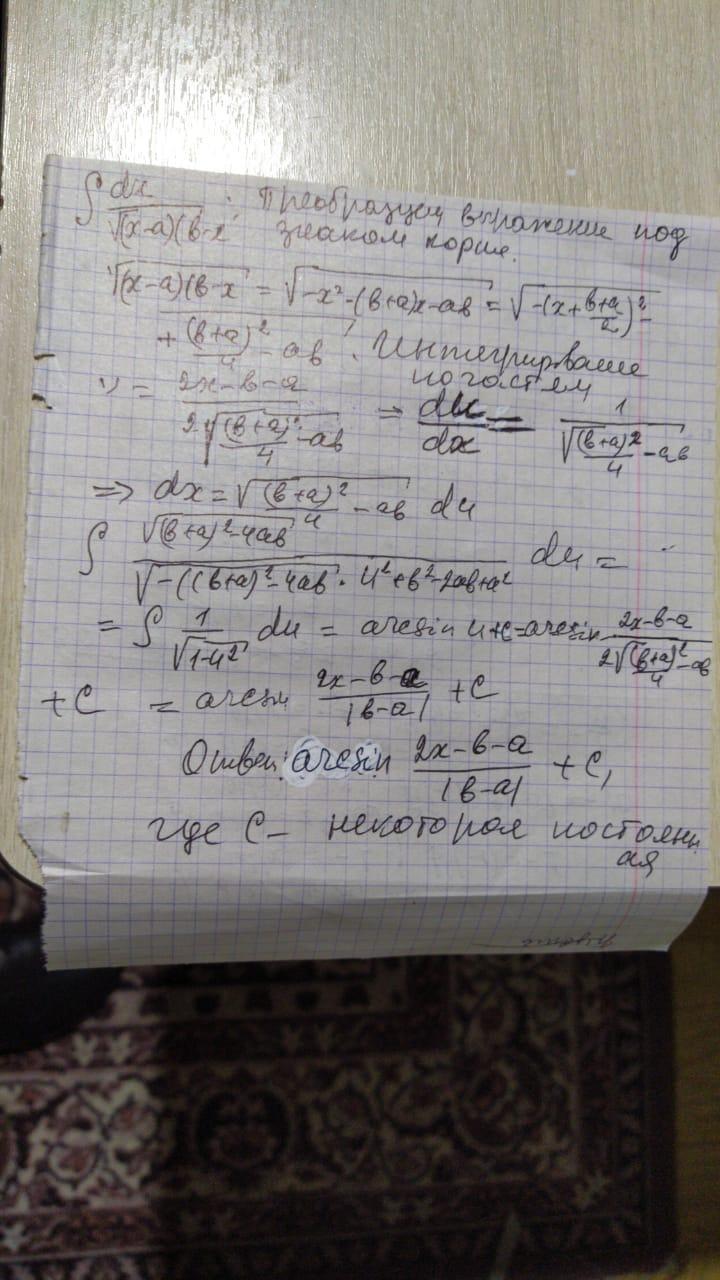 ∫ dx / √(x-a)(в-x . Преобразуем выражение под
знаком корня.
√(x-a)(в-x = √-x²-(в+a)x-aв = √-(x+ в+a/2)²-
+ (в+a)²/4 - aв . Интегрирование
по частям
= 2x-в-a / 2√(в+a)²/4 -aв => du/dx = 1 / √(в+a)²/4 -aв
=> dx = √(в+a)²/4 -aв du
∫ √(в+a)²-4aв / √-((в+a)²-4aв · u²+в²-2aв+a² du =
= ∫ 1/√1-u² du = arcsin u+c=arcsin 2x-в-a / 2√(в+a)²/4 -aв
+C = arcsin 2x-в-a / |в-a| +C
Ответ: arcsin 2x-в-a / |в-a| +C,
где C- некоторая постоянн
ая